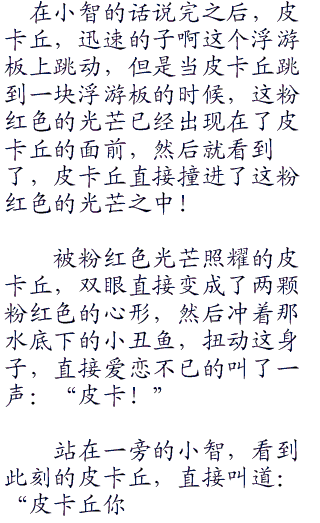 在小智的话说完之后，皮
卡丘，迅速的子啊这个浮游
板上跳动，但是当皮卡丘跳
到一块浮游板的时候，这粉
红色的光芒已经出现在了皮
卡丘的面前，然后就看到
了，皮卡丘直接撞进了这粉
红色的光芒之中！
被粉红色光芒照耀的皮
卡丘，双眼直接变成了两颗
粉红色的心形，然后冲着那
水底下的小丑鱼，扭动这身
子，直接爱恋不已的叫了一
声：“皮卡！”
站在一旁的小智，看到
此刻的皮卡丘，直接叫道：
“皮卡丘你